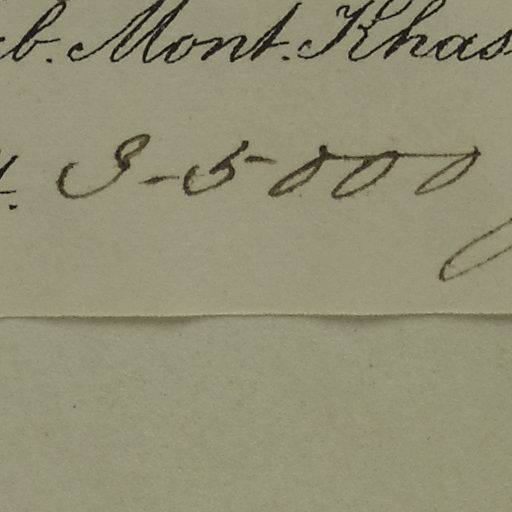 b. Mont. Khas
3-5000